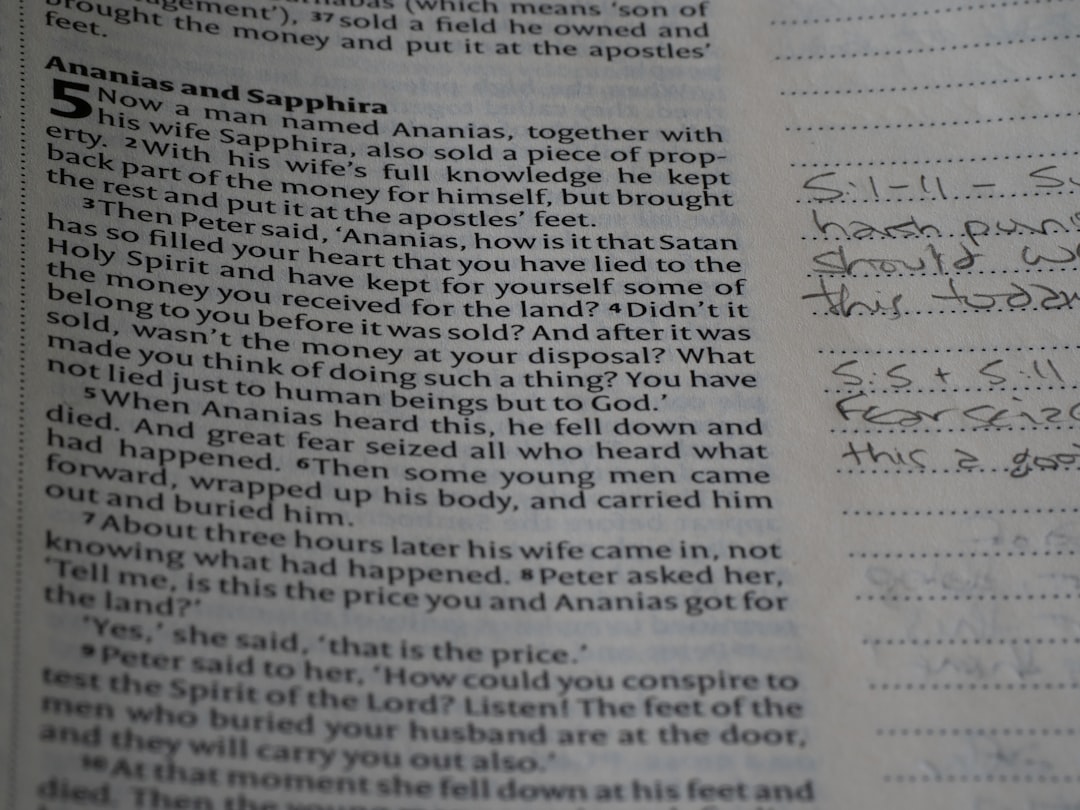 (which means 'son of
37 sold a field he owned and
brought the money and put it at the apostles'
feet.
Ananias and Sapphira
5 Now a man named Ananias, together with
his wife Sapphira, also sold a piece of prop-
erty. 2 With his wife's full knowledge he kept
back part of the money for himself, but brought
the rest and put it at the apostles' feet.
3 Then Peter said, 'Ananias, how is it that Satan
has so filled your heart that you have lied to the
Holy Spirit and have kept for yourself some of
the money you received for the land? 4 Didn't it
belong to you before it was sold? And after it was
sold, wasn't the money at your disposal? What
made you think of doing such a thing? You have
not lied just to human beings but to God.'
5 When Ananias heard this, he fell down and
died. And great fear seized all who heard what
had happened. 6 Then some young men came
forward, wrapped up his body, and carried him
out and buried him.
7 About three hours later his wife came in, not
knowing what had happened. 8 Peter asked her,
'Tell me, is this the price you and Ananias got for
the land?'
'Yes,' she said, 'that is the price.'
9 Peter said to her, 'How could you conspire to
test the Spirit of the Lord? Listen! The feet of the
men who buried your husband are at the door,
and they will carry you out also.'
10 At that moment she fell down at his feet and
died. Then the young
5:1-11 -
harsh
should
this today
5:5 + 5:11
Fear
this a